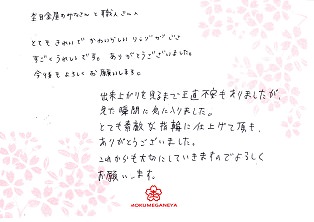 杢目金屋のみなさんと職人さんへ
とてもきれいでかわいらしいリングができ
すごくうれしいです。ありがとうございました。
今後もよろしくお願いします。
出来上がりを見るまで正直不安もありましたが、
見た瞬間に気に入りました。
とても素敵な指輪に仕上げて頂き、
ありがとうございました。
これからも大切にしていきますのでよろしく
お願いします。
MOKUMEGANEYA